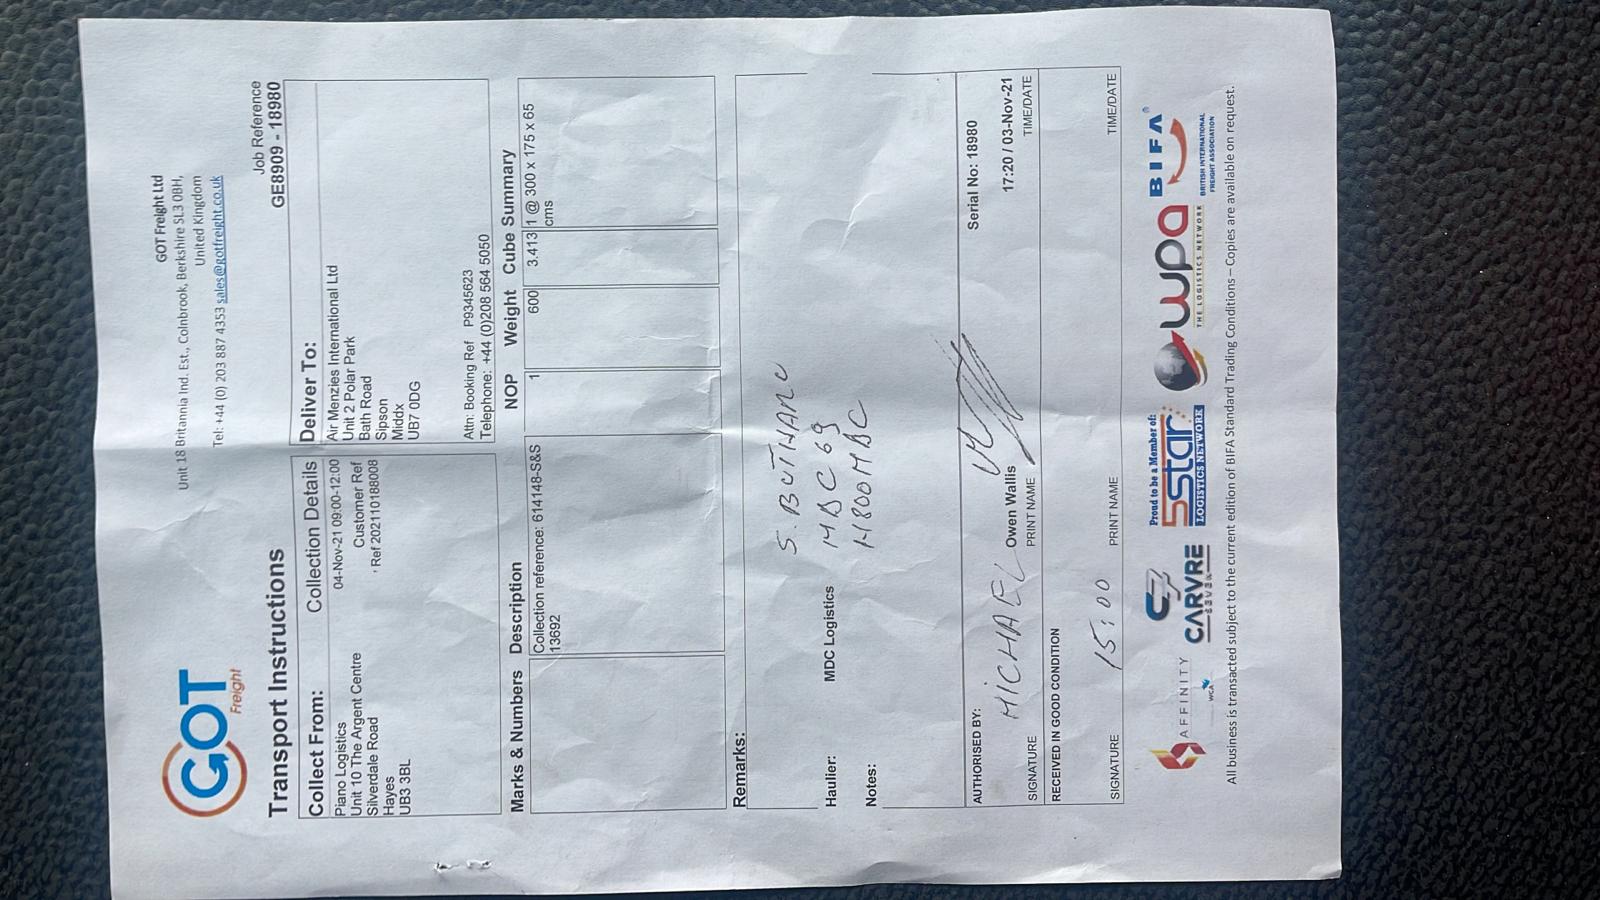 GOT
Freight
GOT Freight Ltd
Unit 18 Britannia Ind. Est., Colnbrook, Berkshire SL3 0BH,
United Kingdom
Tel: +44 (0) 203 887 4353 sales@gotfreight.co.uk
Transport Instructions
Job Reference
GE8909 - 18980
Collect From:
Piano Logistics
Unit 10 The Argent Centre
Silverdale Road
Hayes
UB3 3BL
Collection Details
04-Nov-21 09:00-12:00
Customer Ref
, Ref 202110188008
Deliver To:
Air Menzies International Ltd
Unit 2 Polar Park
Bath Road
Sipson
Middx
UB7 0DG
Attn: Booking Ref P9345623
Telephone: +44 (0)208 564 5050
Marks & Numbers Description NOP Weight Cube Summary
Collection reference: 614148-S&S 1 600 3.413 1 @ 300 x 175 x 65
13692 cms
Remarks:
Haulier: MDC Logistics
Notes:
AUTHORISED BY: Serial No: 18980
MICHAEL Owen Wallis 17:20 / 03-Nov-21
SIGNATURE PRINT NAME TIME/DATE
RECEIVED IN GOOD CONDITION
15:00
SIGNATURE PRINT NAME TIME/DATE
AFFINITY
WCA
CARVRE
SEVEN
Proud to be a Member of:
5star
LOGISTICS NETWORK
wpa
THE LOGISTICS NETWORK
BIFA
BRITISH INTERNATIONAL
FREIGHT ASSOCIATION
All business is transacted subject to the current edition of BIFA Standard Trading Conditions – Copies are available on request.